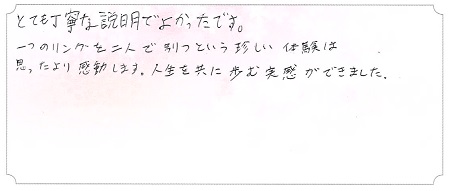 とても丁寧な説明でよかったです。
一つのリングを二人で引っという珍しい体験は
思ったより感動します。人生を共に歩む実感ができました.